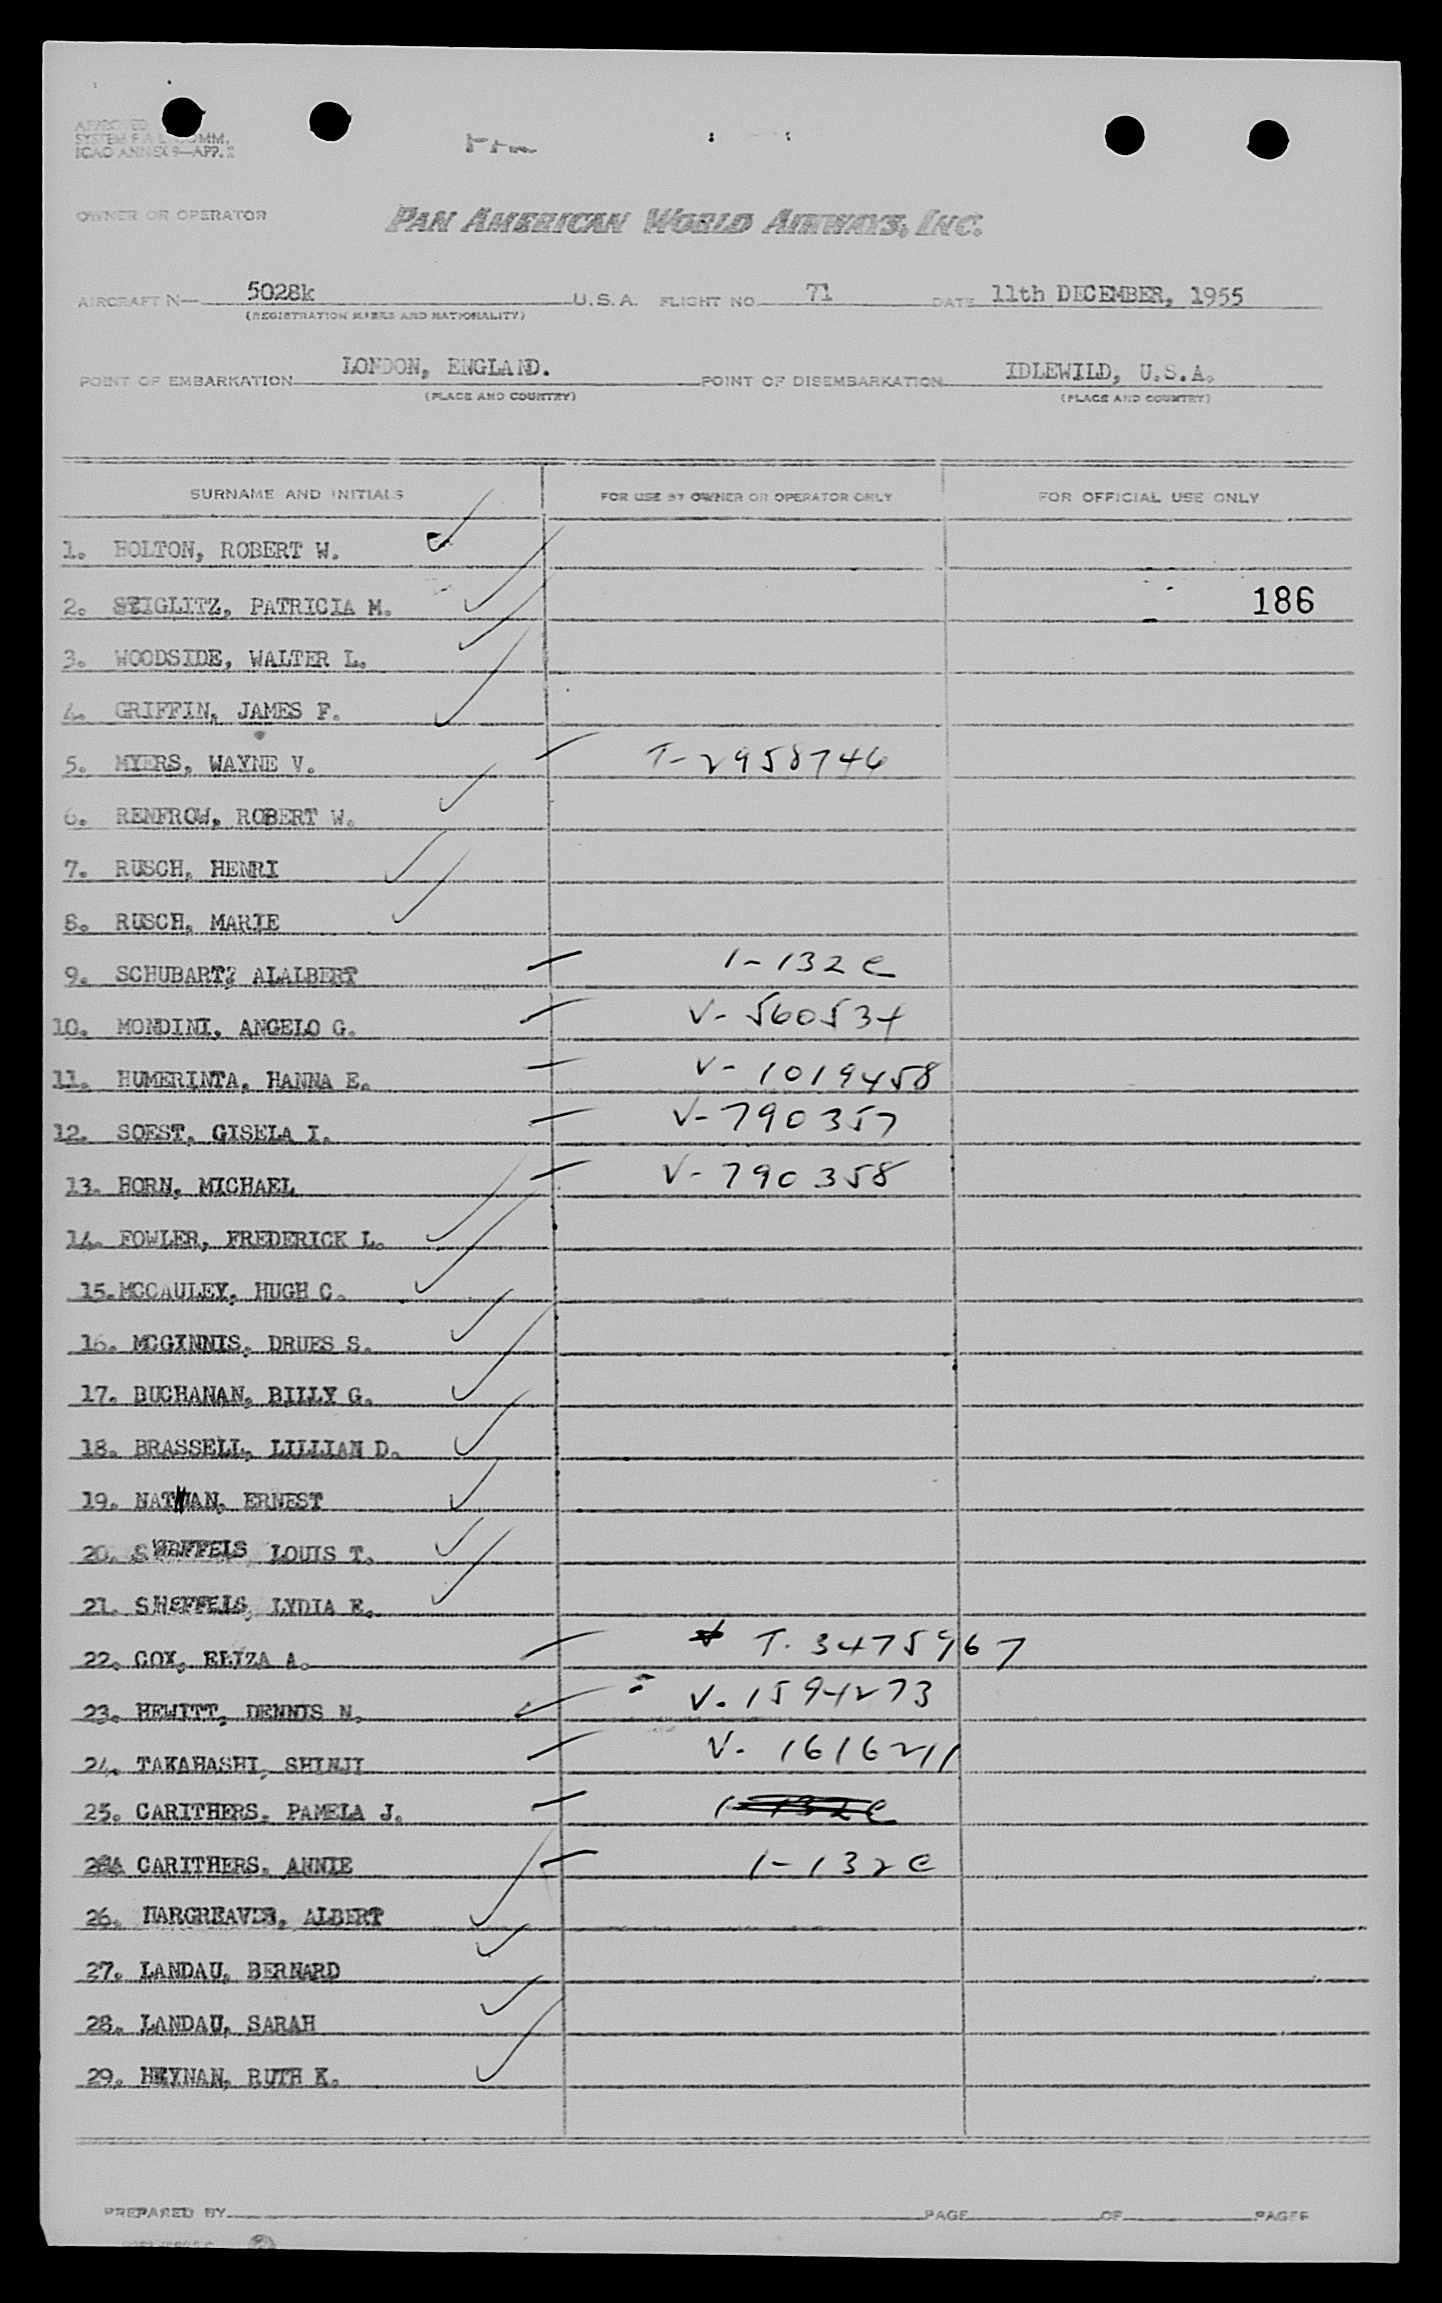 APPROVED
SYSTEM F A L COMM.
ICAO ANNEX 9—APP. 2
OWNER OR OPERATOR PAN AMERICAN WORLD AIRWAYS, INC.
AIRCRAFT N— 5028k U.S.A. FLIGHT NO. 71 DATE 11th DECEMBER, 1955
(REGISTRATION MARKS AND NATIONALITY)
POINT OF EMBARKATION LONDON, ENGLAND. POINT OF DISEMBARKATION IDLEWILD, U.S.A.
(PLACE AND COUNTRY) (PLACE AND COUNTRY)
SURNAME AND INITIALS FOR USE BY OWNER OR OPERATOR ONLY FOR OFFICIAL USE ONLY
1. HOLTON, ROBERT W.
2. SEIGLITZ, PATRICIA M. 186
3. WOODSIDE, WALTER L.
4. GRIFFIN, JAMES F.
5. MYERS, WAYNE V. T-2958746
6. RENFROW, ROBERT W.
7. RUSCH, HENRI
8. RUSCH, MARIE
9. SCHUBARTZ ALALBERT 1-132 C
10. MONDINI, ANGELO G. V-560534
11. HUMERINTA, HANNA E. V-1019458
12. SOEST, GISELA I. V-790357
13. HORN, MICHAEL V-790358
14. FOWLER, FREDERICK L.
15. MCCAULEY, HUGH C.
16. MCGINNIS, DRUES S.
17. BUCHANAN, BILLY G.
18. BRASSELL, LILLIAN D.
19. NATHAN, ERNEST
20. SHEFFELS LOUIS T.
21. SHEFFELS, LYDIA E.
22. COX, ELIZA A. T. 3475967
23. HEWITT, DENNIS N. V. 1594273
24. TAKAHASHI, SHINJI V. 1616211
25. CARITHERS, PAMELA J. 1-132C
28A CARITHERS, ANNIE 1-132 C
26. HARGREAVES, ALBERT
27. LANDAU, BERNARD
28. LANDAU, SARAH
29. HEYNAN, RUTH K.
PREPARED BY PAGE OF PAGES